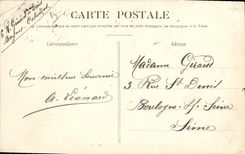 CARTE POSTALE
Correspondance
Adresse
Mon meilleur Souvenir
A. Léonard
Madame Giraud
3 Rue St Denis
Boulogne s/ Seine
Seine